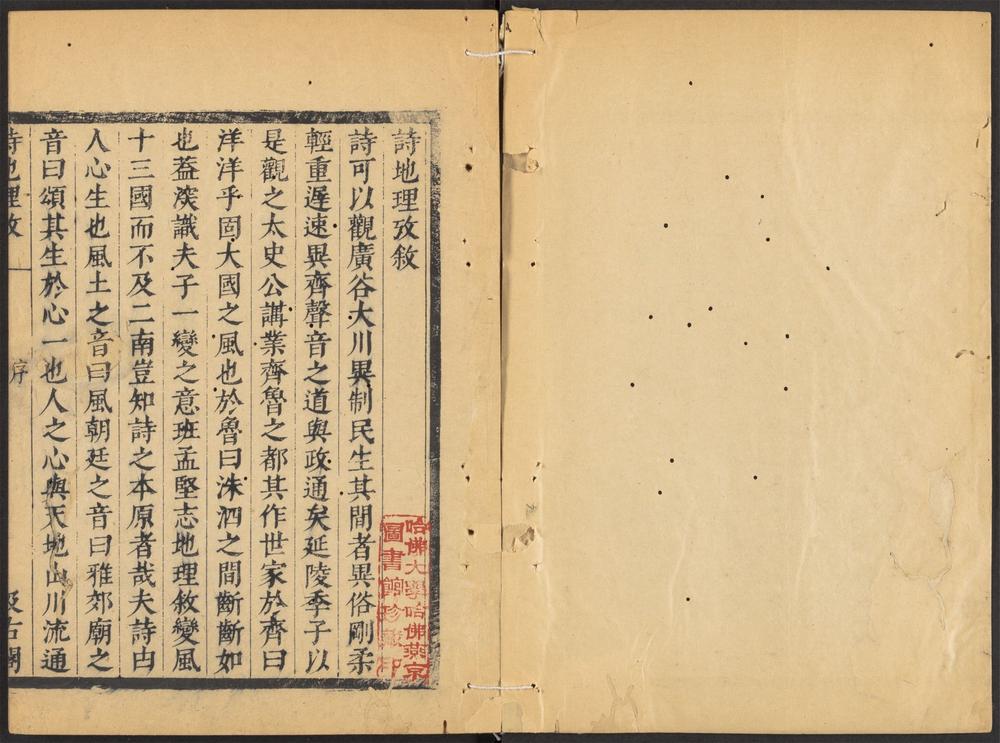 詩地理攷敘
詩可以觀廣谷大川異制民生其間者異俗剛柔
輕重遲速異齊聲音之道與政通矣延陵季子以
是觀之太史公講業齊魯之都其作世家於齊曰
洋洋乎固大國之風也於魯曰洙泗之間斷斷如
也葢深識夫子一變之意班孟堅志地理敘變風
十三國而不及二南豈知詩之本原者哉夫詩由
人心生也風土之音曰風朝廷之音曰雅郊廟之
音曰頌其生於心一也人之心與天地山川流通
詩地理攷
序
汲古閣
哈佛大學哈佛燕京
圖書館珍藏印